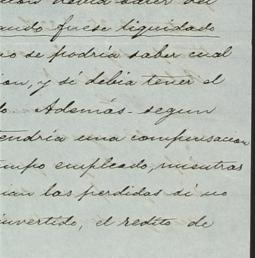 debia saber del
uando fuese liquidado
no se podria saber cual
ion, y si debia tener el
o. Además segun
endria una compensacion
empo empleado, mientras
ian las perdidas si no
invertido, el redito de